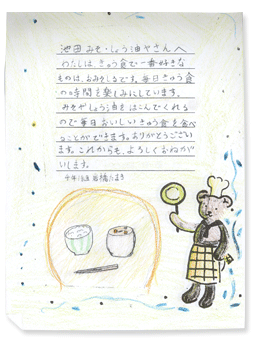 池田みそ・しょう油やさんへ
わたしは、きゅう食で一番好きな
ものは、おみそしるです。毎日きゅう食
の時間を楽しみにしています。
みそやしょう油をはこんでくれる
ので毎日おいしいきゅう食を食べ
ることができます。ありがとうござい
ます。これからも、よろしくおねがい
いします。